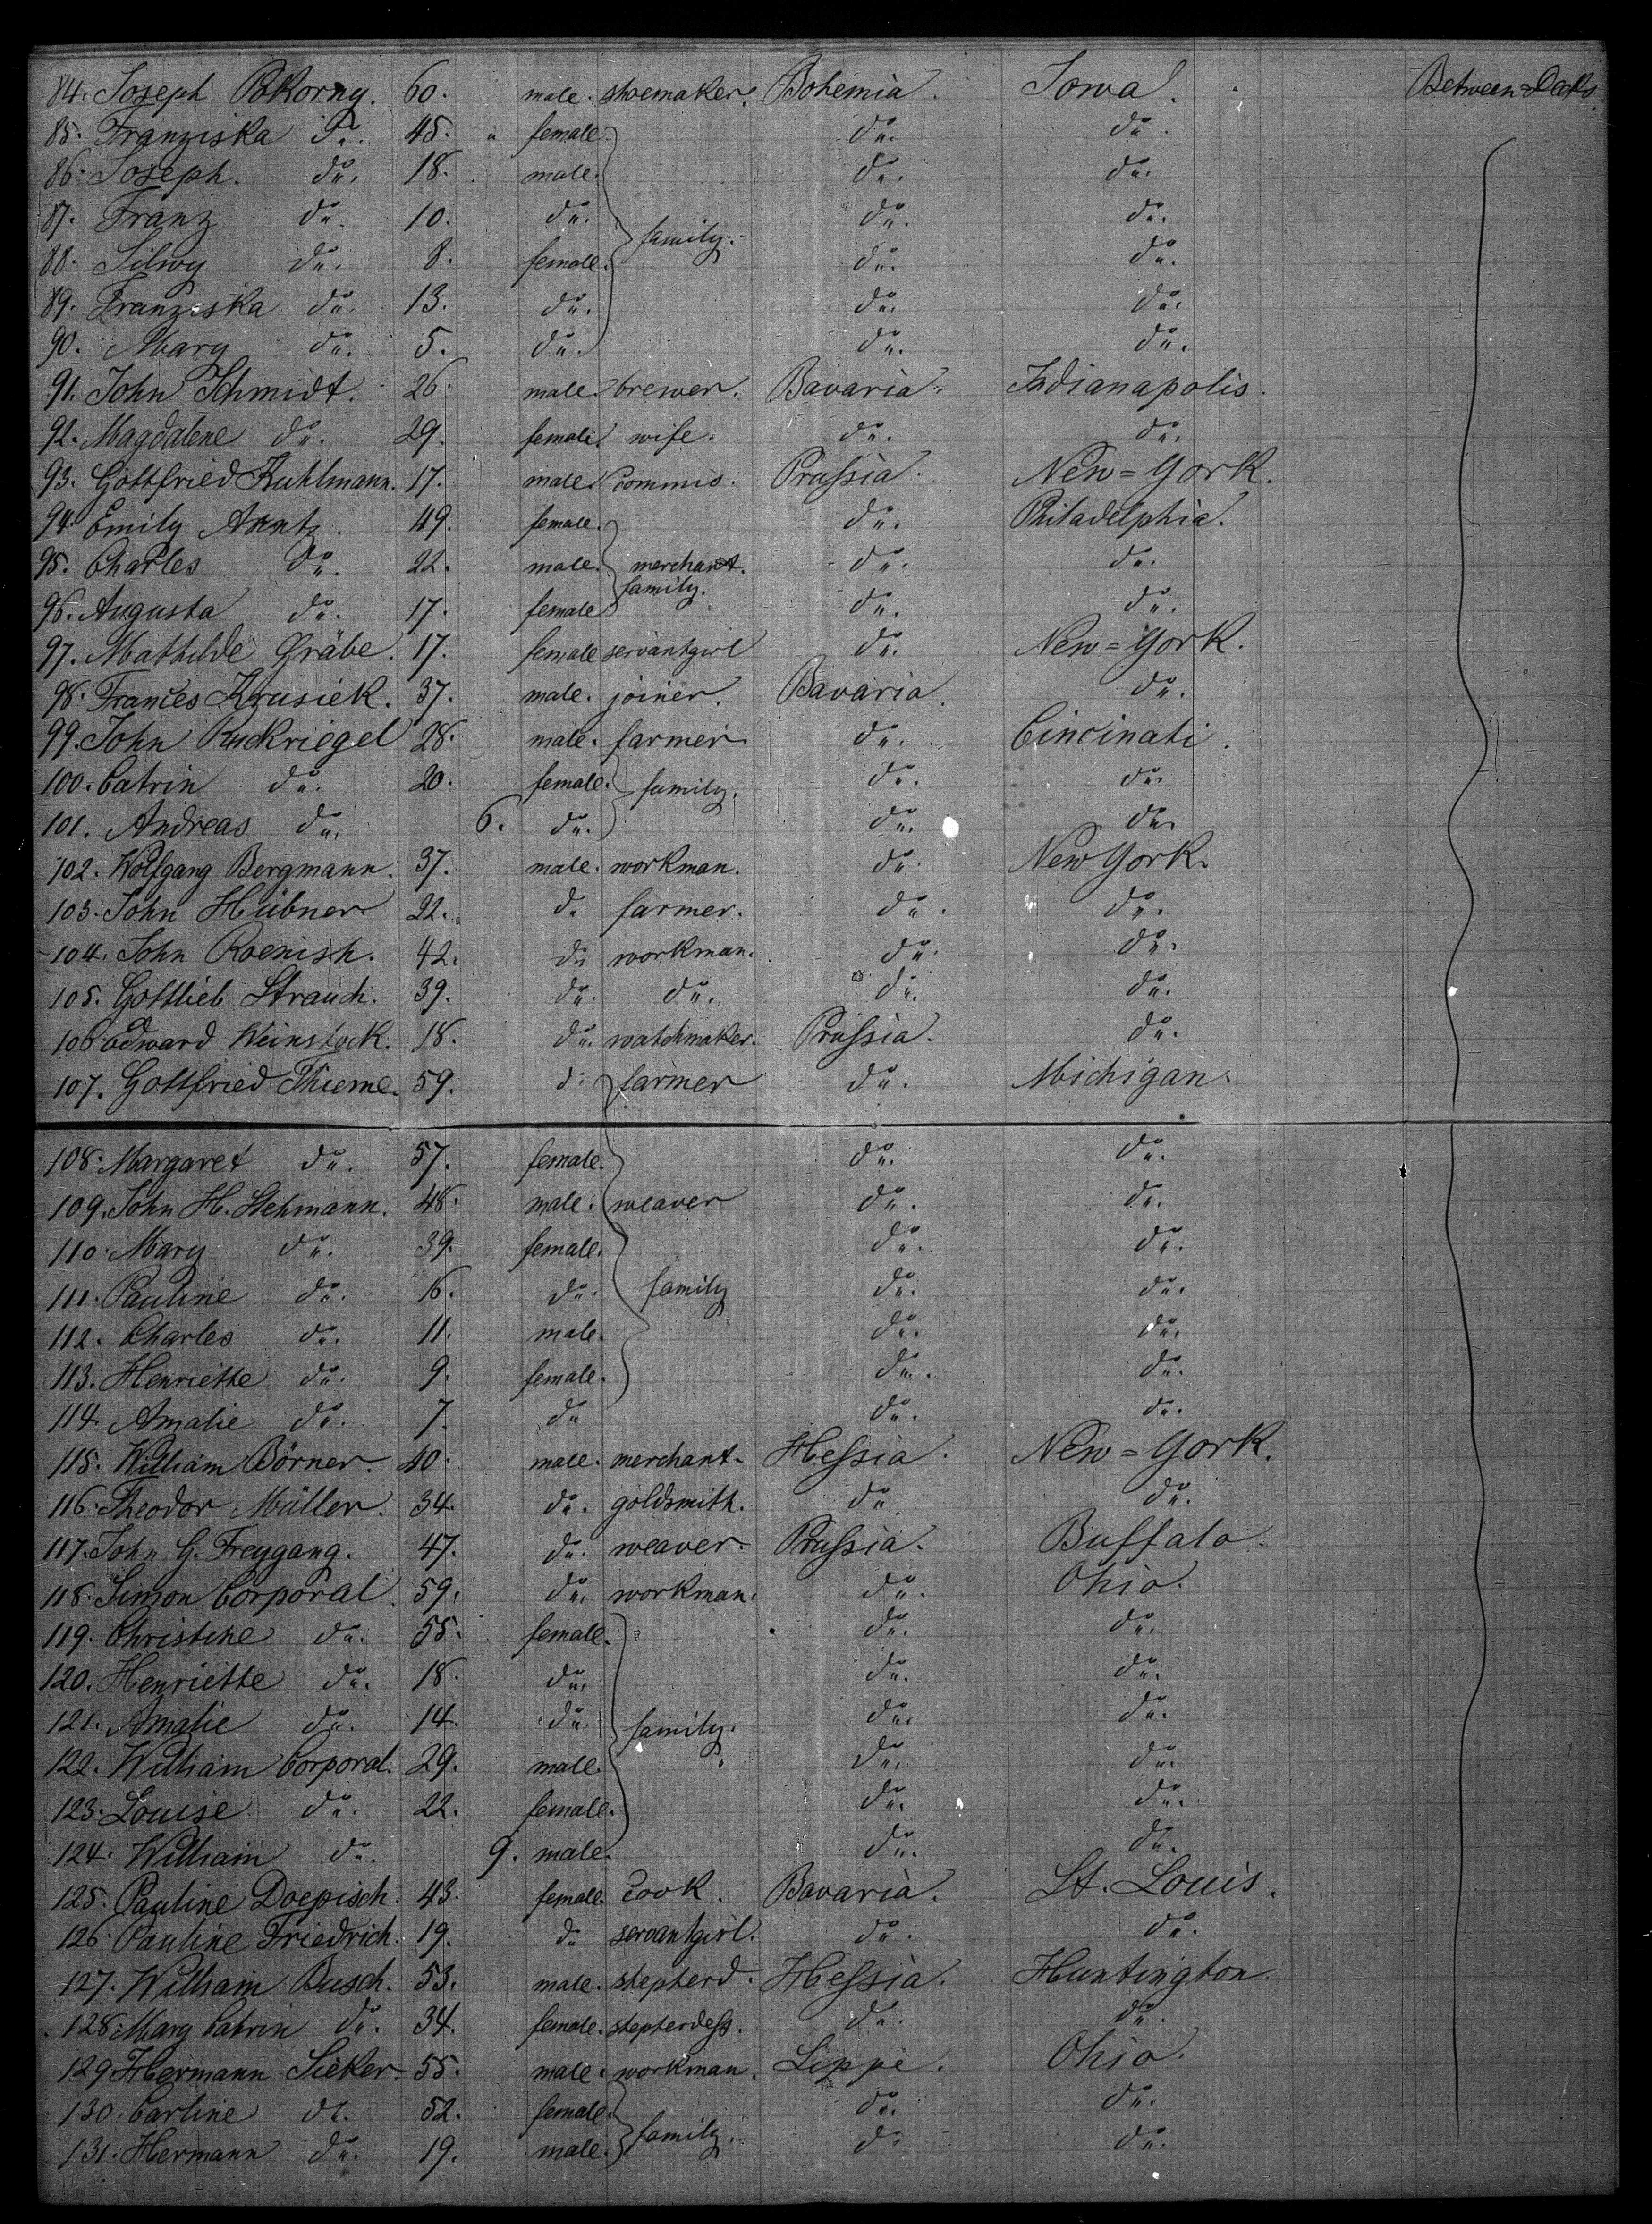 84. Joseph Pokorny. 60. male. shoemaker. Bohemia. Iowa. Between=Decks.
85. Franziska do. 45. female. do. do.
86. Joseph. do. 18. male. do. do.
87. Franz do. 10. do. do. do.
family.
88. Silwy do. 8. female. do. do.
89. Franziska do. 13. do. do. do.
90. Mary do. 5. do. do. do.
91. John Schmidt. 26. male. brewer. Bavaria. Indianapolis.
92. Magdalene do. 29. female. wife. do. do.
93. Gottfried Kuhlmann. 17. male. commis. Prussia. New=York.
94. Emily Arntz. 49. female. do. Philadelphia.
95. Charles do. 22. male. merchant. do. do.
family.
96. Augusta do. 17. female do. do.
97. Mathilde Gräbe. 17. female servantgirl do. New=York.
98. Frances Krusiek. 37. male. joiner. Bavaria. do.
99. John Ruckriegel 28. male. farmer. do. Cincinati.
100. Catrin do. 20. female. family. do. do.
101. Andreas do. 6. do. do. do.
102. Wolfgang Bergmann. 37. male. workman. do. New York.
103. John Hübner 22. d. farmer. do. do.
104. John Roenish. 42. do workman. do. do.
105. Gottlieb Strauch. 39. do. do. do. do.
106. Edward Weinstock. 18. do. watchmaker. Prussia. do.
107. Gottfried Thieme. 59. do farmer do. Michigan.
108. Margaret do. 57. female. do. do.
109. John H. Stehmann. 48. male. weaver do. do.
110. Mary do. 39. female. do. do.
111. Pauline do. 16. do. family do. do.
112. Charles do. 11. male. do. do.
113. Henriette do. 9. female. do. do.
114. Amalie do. 7. do do. do.
115. William Börner. 40. male. merchant. Hessia. New=York.
116. Theodor Müller. 34. do. goldsmith. do do.
117. John G. Freygang. 47. do. weaver. Prussia. Buffalo.
118. Simon Corporal. 59. do. workman. do. Ohio.
119. Christine do. 55. female. do. do.
120. Henriette do. 18. do. do. do.
121. Amalie do. 14. do. family. do. do.
122. William Corporal. 29. male. do. do.
123. Louise do. 22. female. do. do.
124. William do. 9. male. do. do.
125. Pauline Doepisch. 43. female. cook. Bavaria. St. Louis.
126. Pauline Friedrich. 19. do servantgirl. do. do.
127. William Busch. 53. male. stepterd. Hessia. Huntington.
128. Mary Catrin do. 34. female. stepterdess. do. do.
129. Hermann Sieker. 55. male. workman. Lippe. Ohio.
130. Carline do. 52. female. do. do.
family.
131. Hermann do. 19. male. do do.